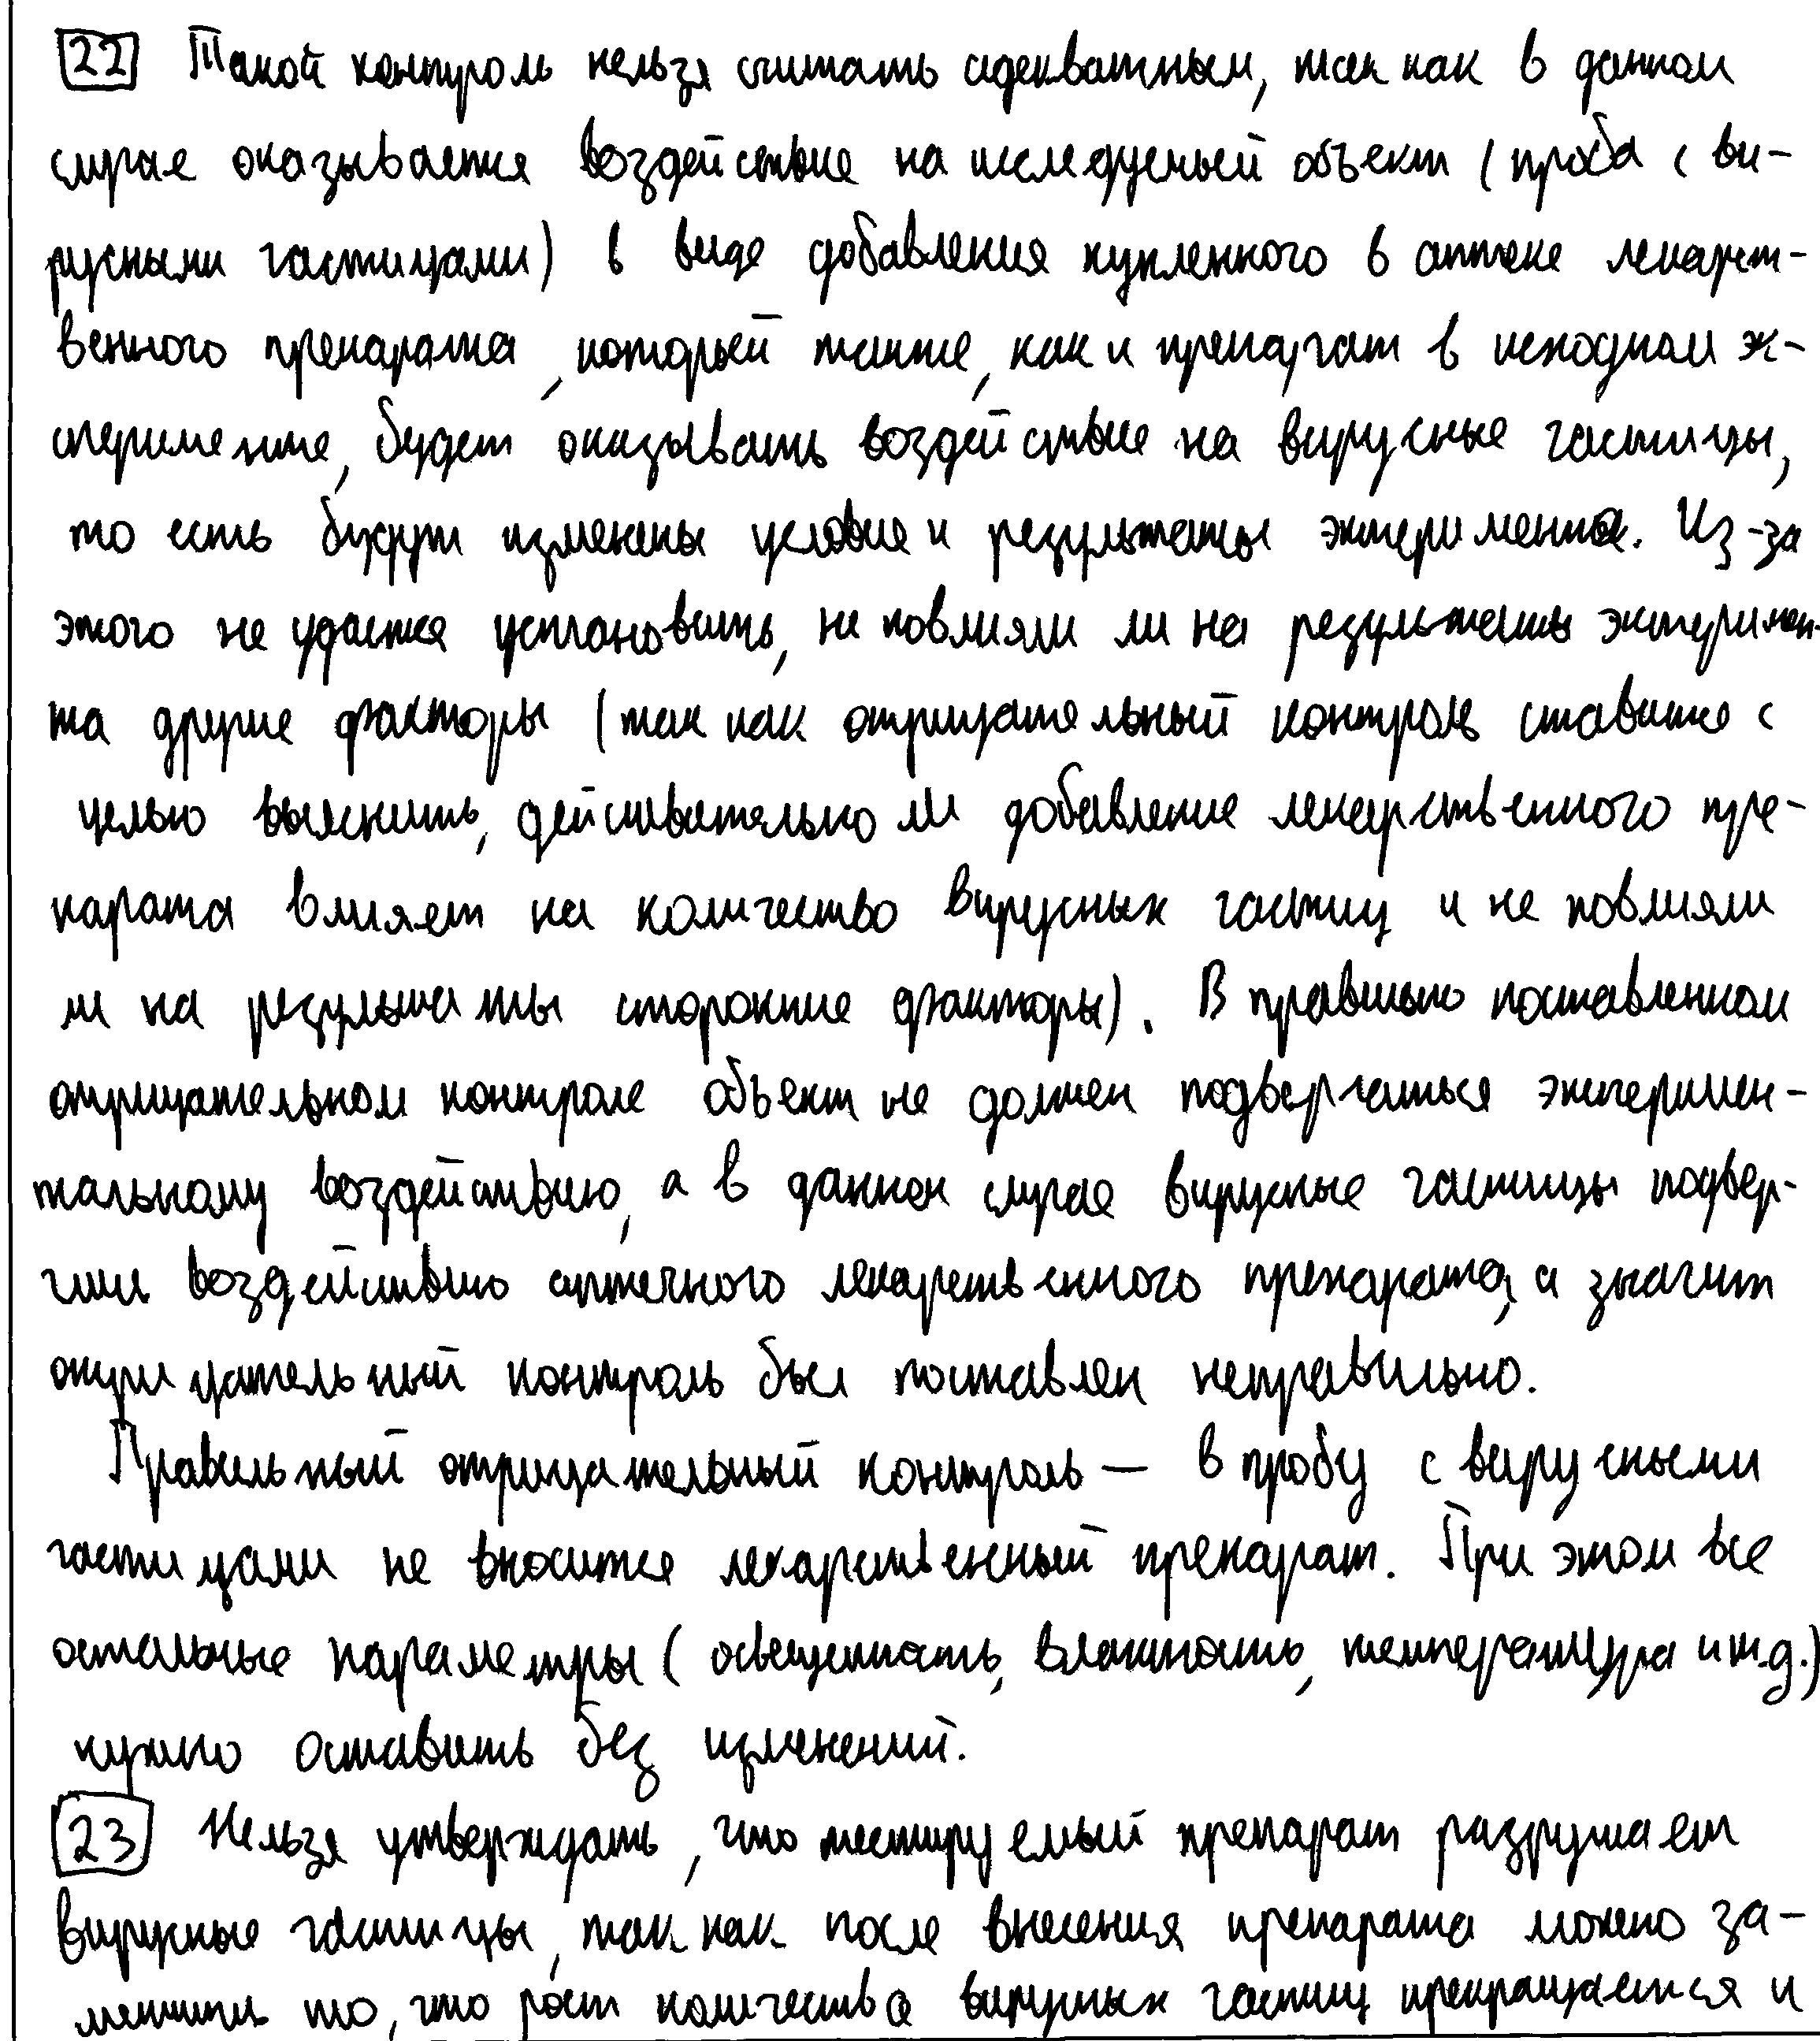 22 Такой контроль нельзя считать адекватным, так как в данном
случае оказывается воздействие на исследуемый объект (проба с ви-
русными частицами) в виде добавления купленного в аптеке лекарст-
венного препарата, который также, как и препарат в исходном эк-
сперименте, будет оказывать воздействие на вирусные частицы,
то есть будут изменены условия и результаты эксперимента. Из-за
этого не удастся установить, не повлияли ли на результаты эксперимен-
та другие факторы (так как отрицательный контроль ставится с
целью выяснить, действительно ли добавление лекарственного пре-
парата влияет на количество вирусных частиц и не повлияли
ли на результаты сторонние факторы). В правильно поставленном
отрицательном контроле объект не должен подвергаться эксперимен-
тальному воздействию, а в данном случае вирусные частицы подвер-
гли воздействию аптечного лекарственного препарата, а значит
отрицательный контроль был поставлен неправильно.
Правильный отрицательный контроль — в пробу с вирусными
частицами не вносится лекарственный препарат. При этом все
остальные параметры (освещенность, влажность, температура и т.д.)
нужно оставить без изменений.
23 Нельзя утверждать, что тестируемый препарат разрушает
вирусные частицы, так как после внесения препарата можно за-
метить то, что рост количества вирусных частиц прекращается и